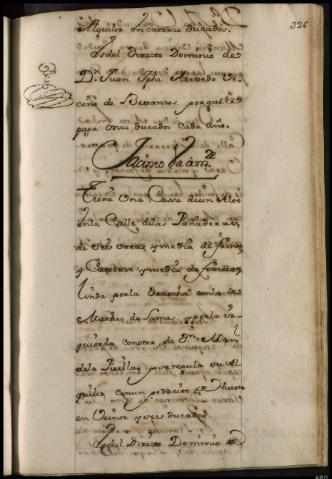 326
Alquiler en catorce ducados.
Es del Directo Dominio de
Dn. Juan Jphe Acevedo Ve
cino de Betanzos, por que le
paga onze ducados cada año.
Jacinto Vaam.de
Tiene Una Cassa de un Alto
en la Calle de las Panaderas
de seis varas y media de frente
y Catorze y media de fondo,
linda por la derecha con la de
Matheo de Lama, y por la iz
quierda con otra de Dn. Man.l
de la Piella, y se regula su Al
quiler con un pedacito de Huerta
en Veinte y seis ducados
Es del Directo Dominio